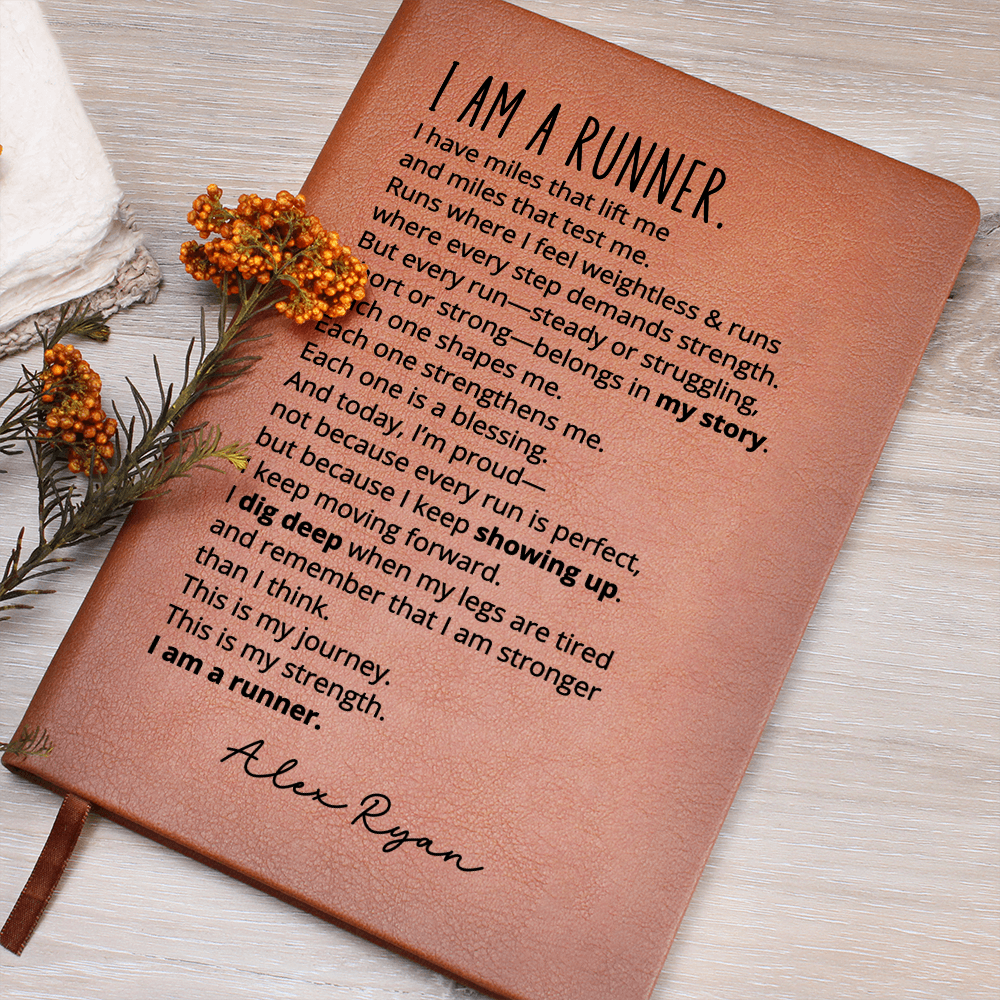 I AM A RUNNER.
I have miles that lift me
and miles that test me.
Runs where I feel weightless & runs
where every step demands strength.
But every run—steady or struggling,
or strong—belongs in my story.
one shapes me.
Each one strengthens me.
Each one is a blessing.
And today, I'm proud—
not because every run is perfect,
but because I keep showing up.
keep moving forward.
I dig deep when my legs are tired
and remember that I am stronger
than I think.
This is my journey.
This is my strength.
I am a runner.
Alex Ryan